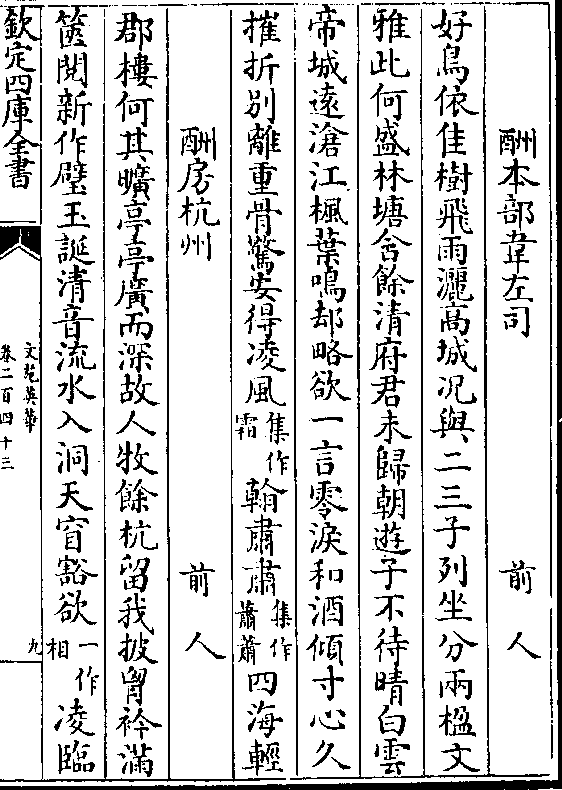 酬本部韋左司　前人
好鳥依佳樹飛雨灑高城况與二三子列坐分兩楹文
雅此何盛林塘含餘清府君未歸朝遊子不待晴白雲
帝城遠滄江楓葉鳴却略欲一言零淚和酒傾寸心久
摧折别離重骨驚安得凌風集作霜翰肅肅集作蕭蕭四海輕
酬房杭州　前人
郡樓何其曠亭亭廣而深故人牧餘杭留我披胷衿滿
箧閱新作璧玉誕清音流水入洞天窅豁欲一作相凌臨
欽定四庫全書
文苑英華
卷二百四十三
九